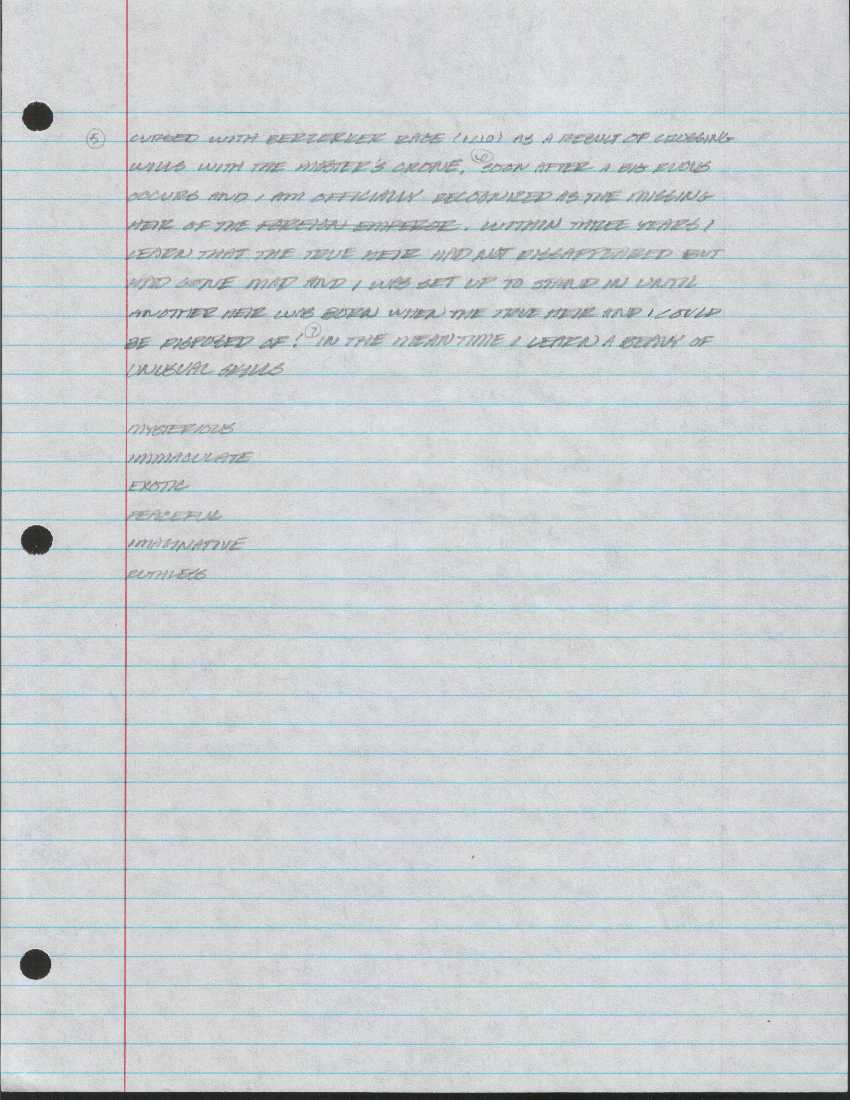 ⑤ CURSED WITH BERZERKER RAGE (1/10) AS A RESULT OF CROSSING
WILLS WITH THE MASTER'S CRONE. ⑥ SOON AFTER A BIG RUCUS
OCCURS AND I AM OFFICIALLY RECOGNIZED AS THE MISSING
HEIR OF THE FOREIGN EMPEROR. WITHIN THREE YEARS I
LEARN THAT THE TRUE HEIR HAD NOT DISSAPPEARED BUT
HAD GONE MAD AND I WAS SET UP TO STAND IN UNTIL
ANOTHER HEIR WAS BORN WHEN THE TRUE HEIR AND I COULD
BE DISPOSED OF! ⑦ IN THE MEANTIME I LEARN A BEAVY OF
UNUSUAL SKILLS
MYSTERIOUS
IMMACULATE
EXOTIC
PEACEFUL
IMAGINATIVE
RUTHLESS